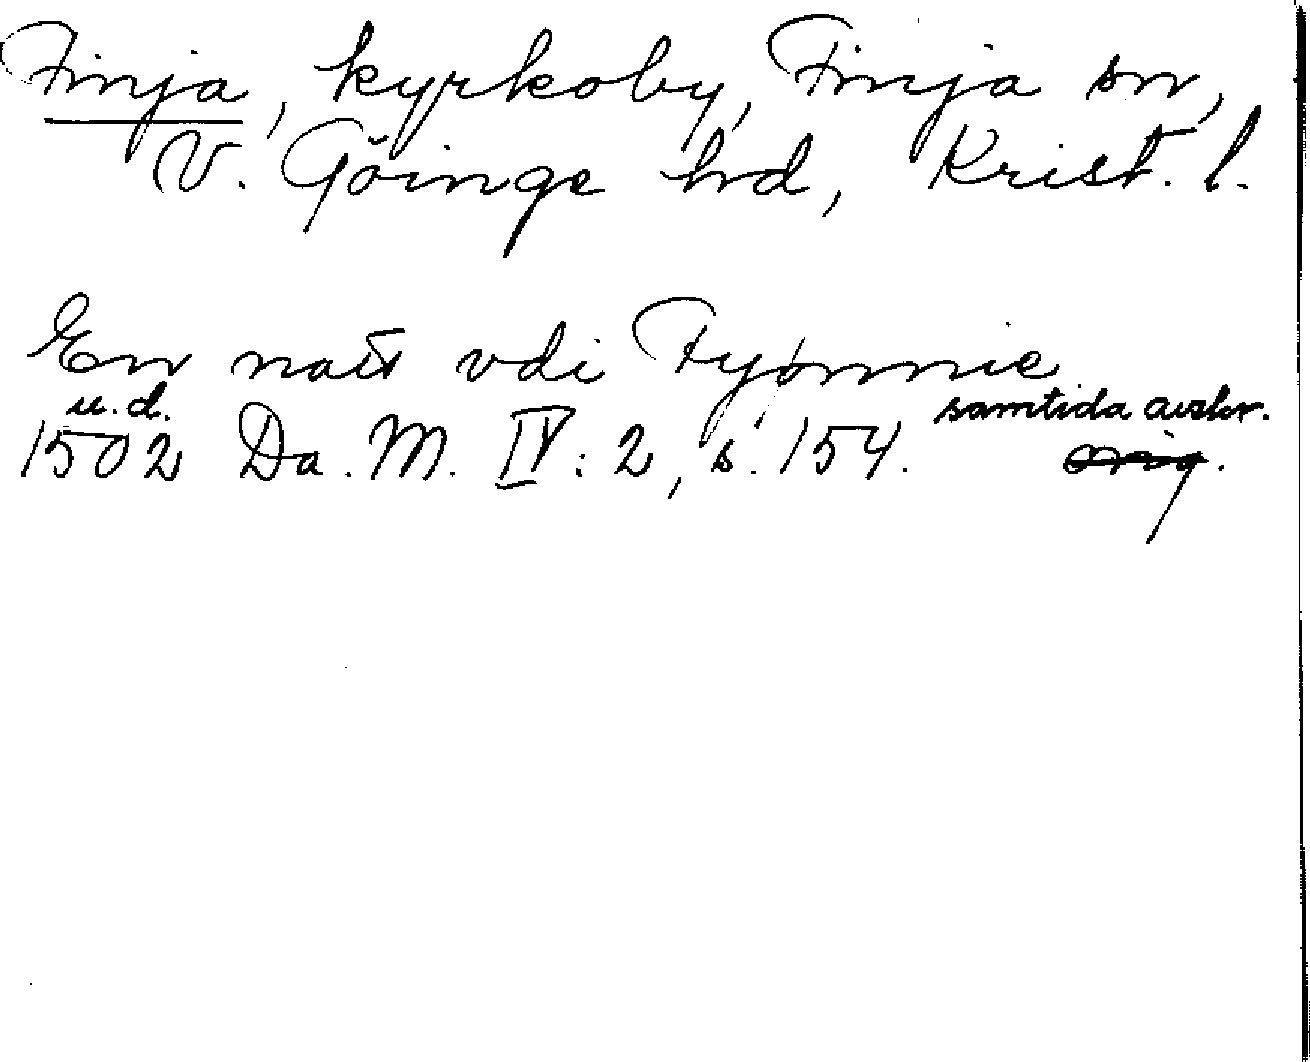 Finja, kyrkoby, Finja sn,
V. Göinge hd, Krist. l.
En natt vdi Fyønnie
u.d. samtida avskr.
1502 Da. M. IV: 2, s. 154. orig.